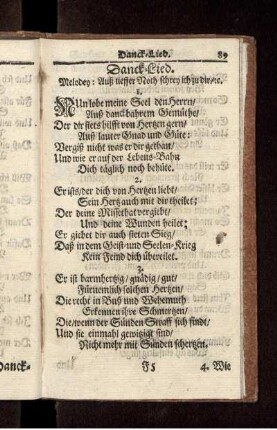 Danck-Lied. 89
Danck-Lied.
Melodey: Auß tieffer Noth schrey ich zu dir/ ꝛc.
1.
NUn lobe meine Seel den Herrn/
Auß danckbahrem Gemüthe/
Der dir stets hilfft von Hertzen gern/
Auß lauter Gnad und Güte:
Vergiß nicht was er dir gethan/
Und wie er auf der Lebens-Bahn
Dich täglich noch behüte.
2.
Er ists/ der dich von Hertzen liebt/
Sein Hertz auch mit dir theilet;
Der deine Missethat vergiebt/
Und deine Wunden heilet;
Er giebet dir auch steten Sieg/
Daß in dem Geist- und Seelen-Krieg
Kein Feind dich übereilet.
3.
Er ist barmhertzig/ gnädig/ gut/
Fürnemlich solchen Hertzen/
Die recht in Buß und Wehemuth
Erkennen ihre Schmertzen/
Die/ wenn der Sünden Straff sich findt/
Und sie einmahl gewitzigt sind/
Nicht mehr mit Sünden schertzen.
F5 4. Wie
Danck-